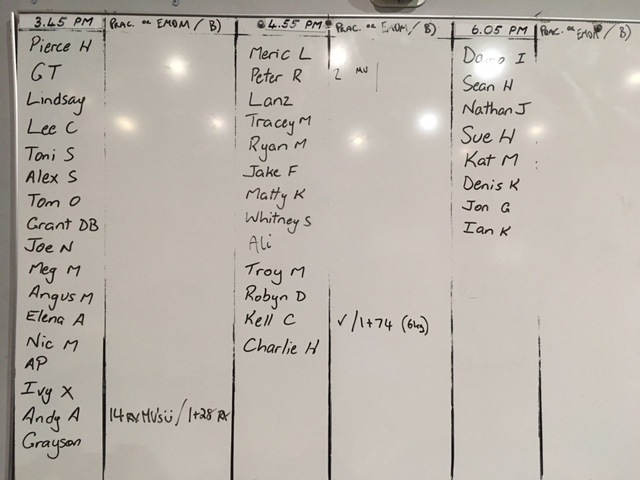 3.45 PM
PRAC. or EMOM / B)
Pierce H
GT
Lindsay
Lee C
Toni S
Alex S
Tom O
Grant DB
Joe N
Meg M
Angus M
Elena A
Nic M
AP
Ivy X
Andy A 14 RX MU's ü / 1+28 RX
Grayson
4.55 PM
PRAC. or EMOM / B)
Meric L
Peter R 2 MU
Lanz
Tracey M
Ryan M
Jake F
Matty K
Whitney S
Ali
Troy M
Robyn D
Kell C ✓/1+74 (6kg)
Charlie H
6.05 PM
PRAC. or EMOM / B)
I
Sean H
Nathan J
Sue H
Kat M
Denis K
Jon G
Ian K